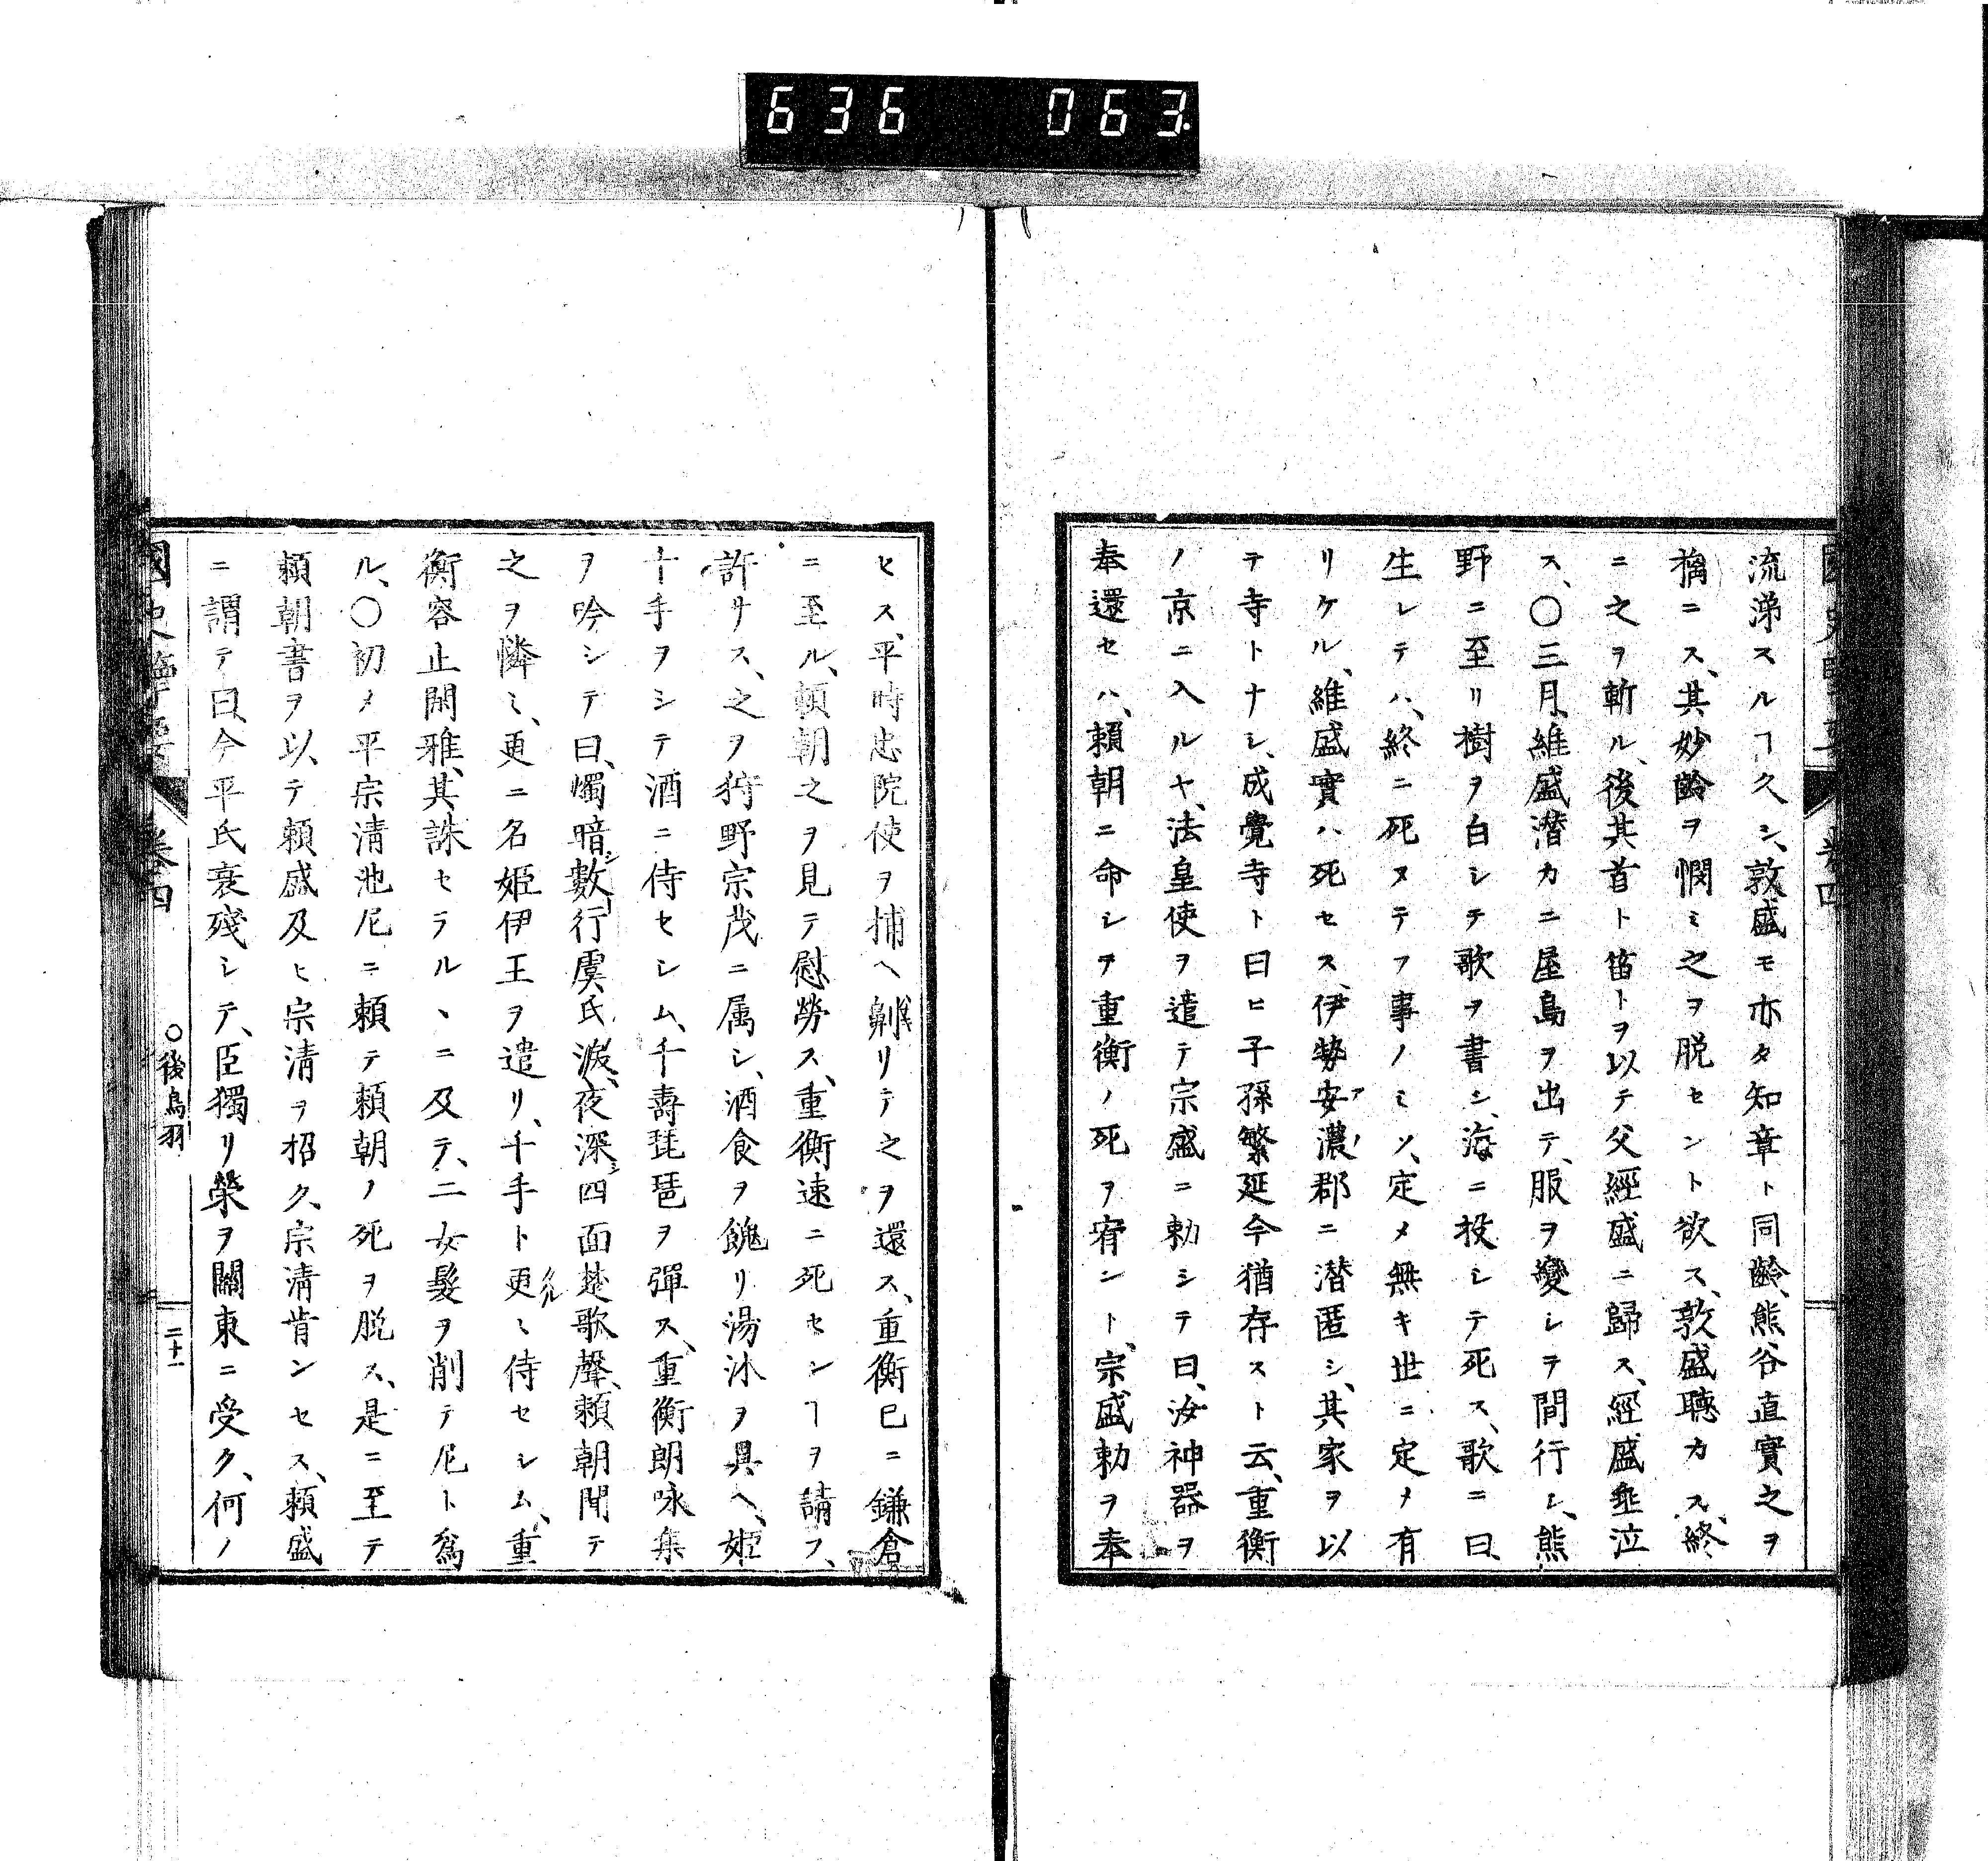 636 063
流涕スルヿ久シ、敦盛モ亦タ知章ト同齡、熊谷直實之ヲ
擒ニス、其妙齡ヲ憫ミ之ヲ脱セント欲ス、敦盛聽カス、終
ニ之ヲ斬ル、後其首ト笛トヲ以テ父經盛ニ歸ス、經盛垂泣
ス、〇三月、維盛潜カニ屋島ヲ出テ、服ヲ變シテ間行シ、熊
野ニ至リ樹ヲ白シテ歌ヲ書シ、海ニ投シテ死ス、歌ニ曰、
生レテハ、終ニ死ヌテフ事ノミソ、定メ無キ世ニ定メ有
リケル、維盛實ハ死セス、伊勢安濃郡ニ潜匿シ、其家ヲ以
テ寺トナシ、成覺寺ト曰ヒ子孫繁延今猶存スト云、重衡
ノ京ニ入ルヤ、法皇使ヲ遣テ宗盛ニ勅シテ曰、汝神器ヲ
奉還セハ、頼朝ニ命シテ重衡ノ死ヲ宥ント、宗盛勅ヲ奉
ヒス、平時忠院使ヲ捕ヘ劓リテ之ヲ還ス、重衡已ニ鎌倉
ニ至ル、頼朝之ヲ見テ慰勞ス、重衡速ニ死センヿヲ請フ、
許サス、之ヲ狩野宗茂ニ属シ、酒食ヲ餽リ湯沐ヲ具ヘ、姫
千手ヲシテ酒ニ侍セシム、千壽琵琶ヲ彈ス、重衡朗咏集
ヲ吟シテ曰、燭暗數行虞氏淚、夜深四面楚歌聲、頼朝聞テ
之ヲ憐ミ、更ニ名姫伊王ヲ遣リ、千手ト更ミ侍セシム、重
衡容止閑雅、其誅セラルヽニ及テ、二女髮ヲ削テ尼ト爲
ル、〇初メ平宗清池尼ニ頼テ頼朝ノ死ヲ脱ス、是ニ至テ
頼朝書ヲ以テ頼盛及ヒ宗清ヲ招ク、宗清肯ンセス、頼盛
ニ謂テ曰、今平氏衰殘シテ、臣獨リ榮ヲ關東ニ受ク、何ノ
卷四 〇後鳥羽 二十一